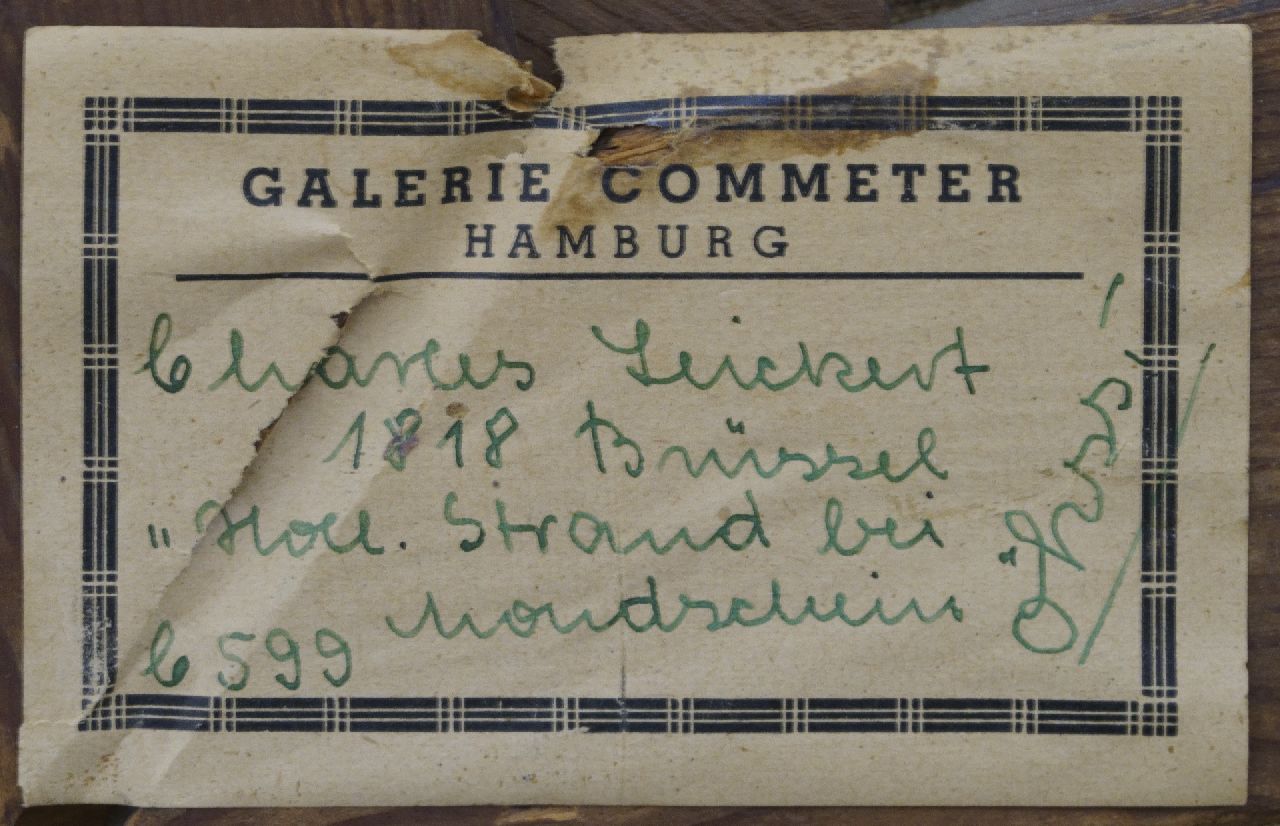 GALERIE COMMETER
HAMBURG
Charles Leickert
1818 Brüssel
"Holl. Strand bei
Mondschein
C 599